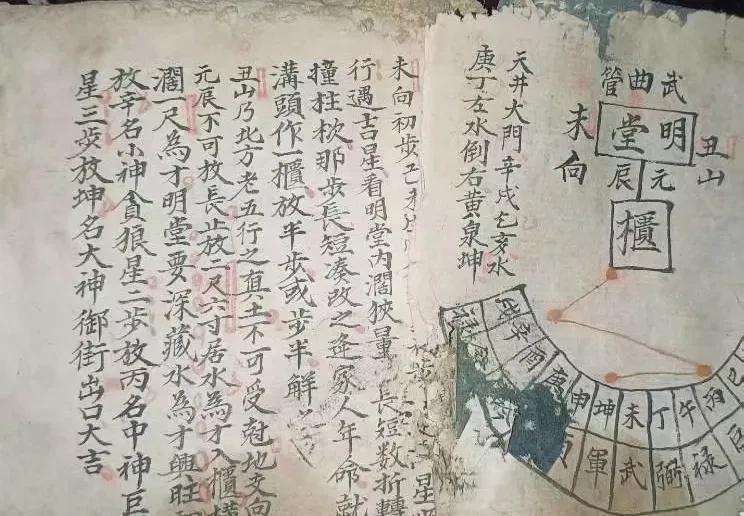 武曲管
明堂
丑山
未向
元辰
櫃
天井大門辛戌乞亥水
庚丁左水倒右黃泉坤
戌辛酉庚申坤未丁午丙巳
軍武弼祿巨
未向初步
行遇吉星看明堂內濶狹量長短数折轉
撞柱杴那步長短湊改之逢家人年命就
溝頭作一櫃放半步或步半解
丑山乃北方老五行之真土不可受尅地支向
元辰不可放長止放二尺六寸居水為才入櫃橫
濶一尺為才明堂要深藏水為才興旺
放辛名小神貪狼星二步放丙名中神巨
星三步放坤名大神御街出口大吉